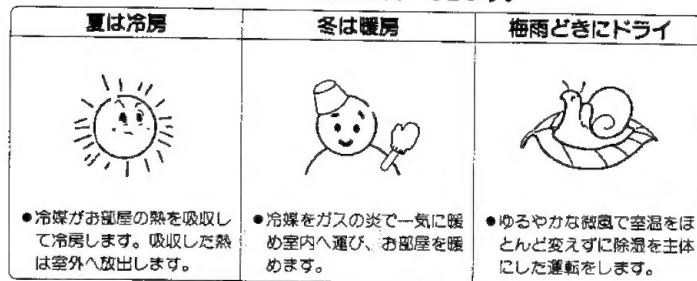 夏は冷房
冬は暖房
梅雨どきにドライ
●冷媒がお部屋の熱を吸収し
て冷房します。吸収した熱
は室外へ放出します。
●冷媒をガスの炎で一気に暖
め室内へ運び、お部屋を暖
めます。
●ゆるやかな微風で室温をほ
とんど変えずに除湿を主体
にした運転をします。